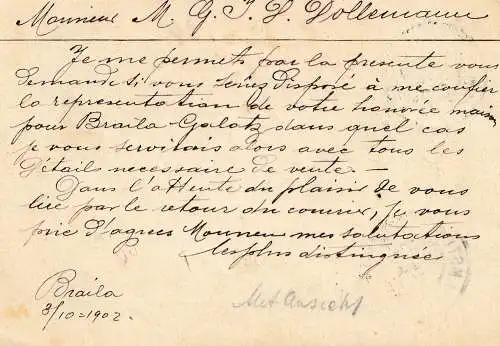 Monsieur M. G. J. S. Dollemann
Je me permets par la presente vous
demande si vous seriez disposé à me confier
la representation de votre honorée maison
pour Braila-Galatz dans quel cas
je vous servirais alors avec tous les
détails necessaire de vente. —
Dans l'attente du plaisir de vous
lire par le retour du courrier, je vous
prie d'agreer Monsieur mes salutations
les plus distinguée
Braila
8/10=1902.
Met Ansicht